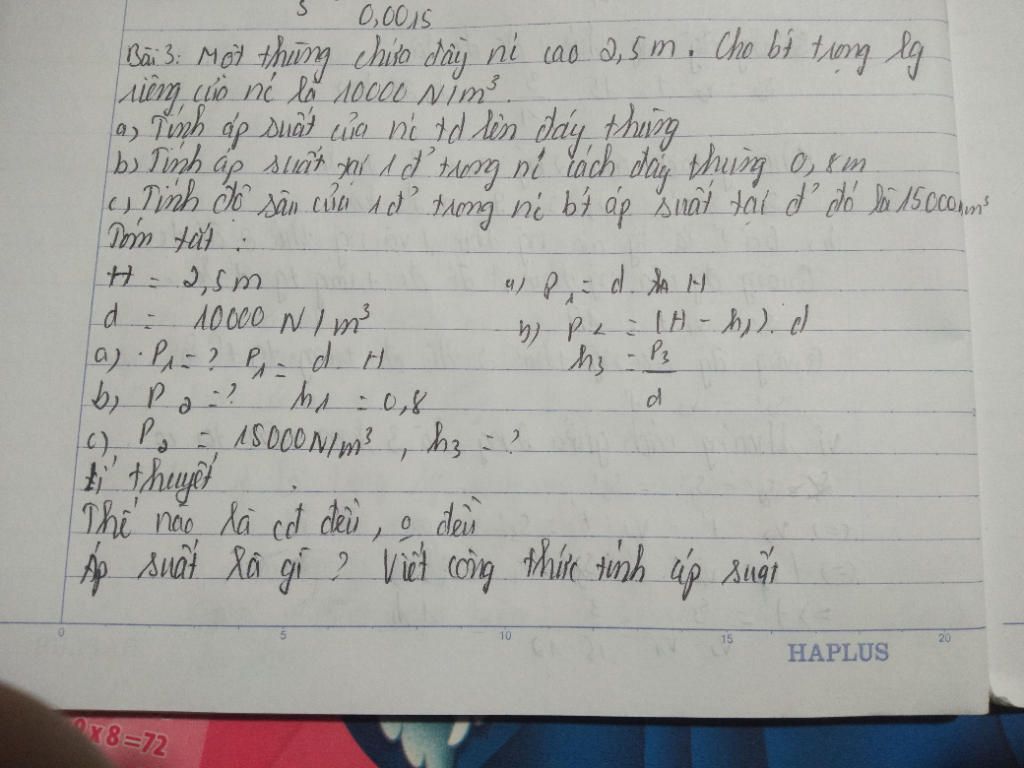 S 0,0015
Bài 3: Một thùng chứa đầy nc cao 2,5m. Cho bt trọng lg
riêng của nc là 10000 N/m³.
a, Tính áp suất của nc td lên đáy thùng
b, Tính áp suất tại 1 đ' trong nc cách đáy thùng 0,8m
c, Tính độ sâu của 1 đ' trong nc bt áp suất tại đ' đó là 15000N/m³
Tóm tắt :
H = 2,5m a, P₁ = d. H
d = 10000 N/m³ b, P₂ = (H - h₁). d
a, P₁ = ? P₁ = d. H h₃ = P₃
b, P₂ = ? h₁ = 0,8 d
c, P₂ = 15000N/m³, h₃ = ?
Lí thuyết
Thế nào là cđ đều, o đều
Áp suất là gì ? Viết công thức tính áp suất
0 5 10 15 20
HAPLUS
9x8=72